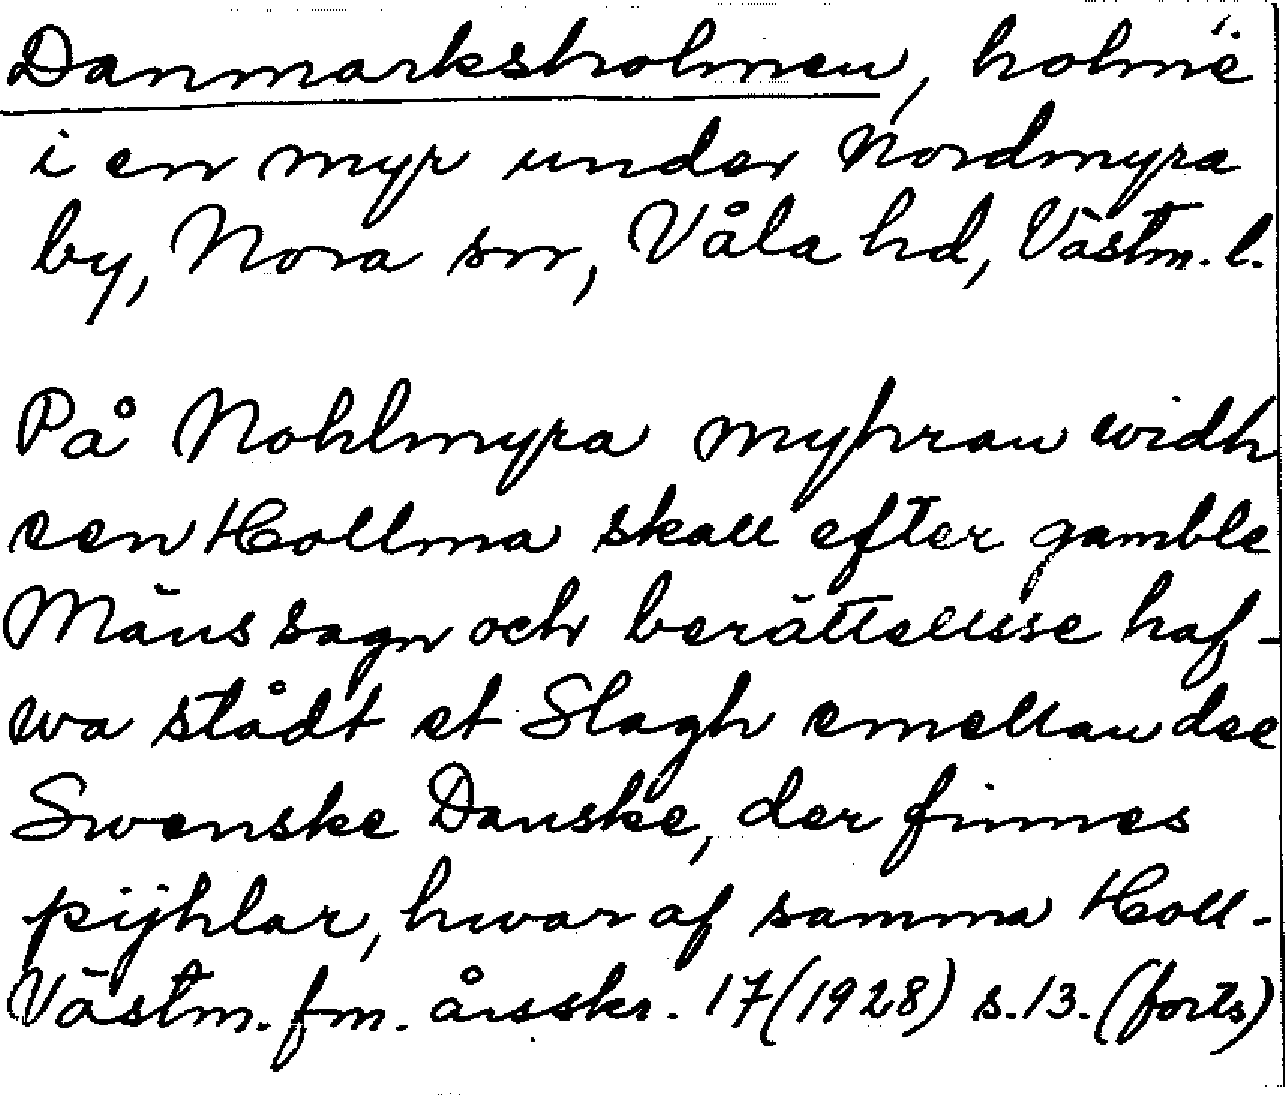 Danmarksholmen, holme
i en myr under Nordmyra
by, Nora sn, Våla hd, Västm. l.
På Nohlmyra myhran widh
een Hollma skall efter gamble
Mäns sagn och berättellsse haf-
wa stådt et Slagh emellan dee
Swenske Danske, der finnes
pijhlar, hwar af samma Holl-
Västm. fm. årsskr. 17 (1928) s. 13. (forts)